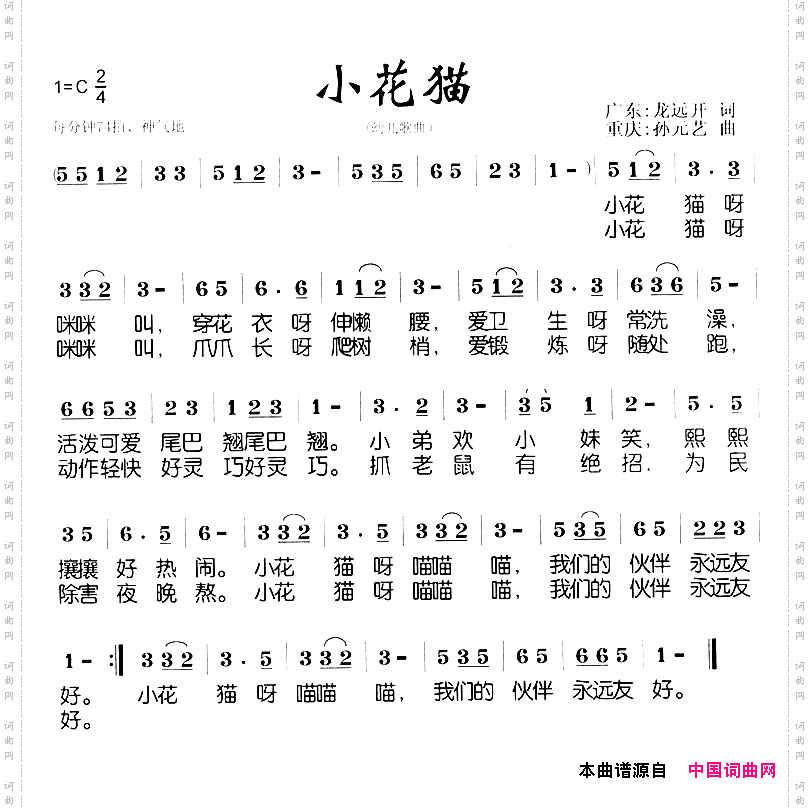 小花猫
1=C 2/4
每分钟74拍、神气地
(幼儿歌曲)
广东:龙远开 词
重庆:孙元艺 曲
(5 5 1 2 | 3 3 | 5 1 2 | 3 - | 5 3 5 | 6 5 | 2 3 | 1 - ) | 5 1 2 | 3 . 3 |
小花 猫 呀
小花 猫 呀
3 3 2 | 3 - | 6 5 | 6 . 6 | 1 1 2 | 3 - | 5 1 2 | 3 . 3 | 6 3 6 | 5 - |
咪咪 叫, 穿花 衣 呀 伸懒 腰, 爱卫 生 呀 常洗 澡,
咪咪 叫, 爪爪 长 呀 爬树 梢, 爱锻 炼 呀 随处 跑,
6 6 5 3 | 2 3 | 1 2 3 | 1 - | 3 . 2 | 3 - | 3 5 1 | 2 - | 5 . 5 |
活泼可爱 尾巴 翘尾巴 翘。 小 弟 欢 小 妹 笑, 熙 熙
动作轻快 好灵 巧好灵 巧。 抓 老 鼠 有 绝 招, 为 民
3 5 | 6 . 5 | 6 - | 3 3 2 | 3 . 5 | 3 3 2 | 3 - | 5 3 5 | 6 5 | 2 2 3 |
攘攘 好 热 闹。 小花 猫 呀 喵喵 喵, 我们的 伙伴 永远友
除害 夜 晚 熬。 小花 猫 呀 喵喵 喵, 我们的 伙伴 永远友
1 - :‖ 3 3 2 | 3 . 5 | 3 3 2 | 3 - | 5 3 5 | 6 5 | 6 6 5 | 1 - ‖
好。 小花 猫 呀 喵喵 喵, 我们的 伙伴 永远友 好。
好。
本曲谱源自 中国词曲网
词曲网